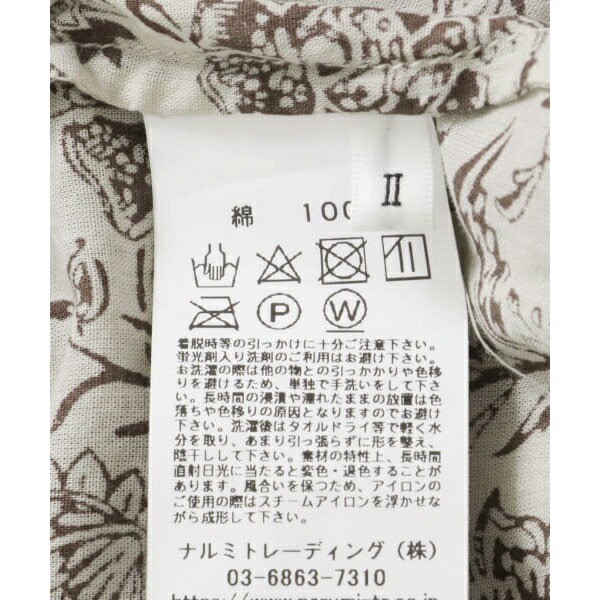 綿 100
II
P
W
着脱時等の引っかけに十分ご注意下さい。
蛍光剤入り洗剤のご利用はお避け下さい。
お洗濯の際は他の物との引っかかりや色移
りを避けるため、単独で手洗いをして下さ
い。長時間の浸漬や濡れたままの放置は色
落ちや色移りの原因となりますのでお避け
下さい。洗濯後はタオルドライ等で軽く水
分を取り、あまり引っ張らずに形を整え、
陰干しして下さい。素材の特性上、長時間
直射日光に当たると変色・退色することが
あります。風合いを保つため、アイロンの
ご使用の際はスチームアイロンを浮かせな
がら成形して下さい。
ナルミトレーディング(株)
03-6863-7310